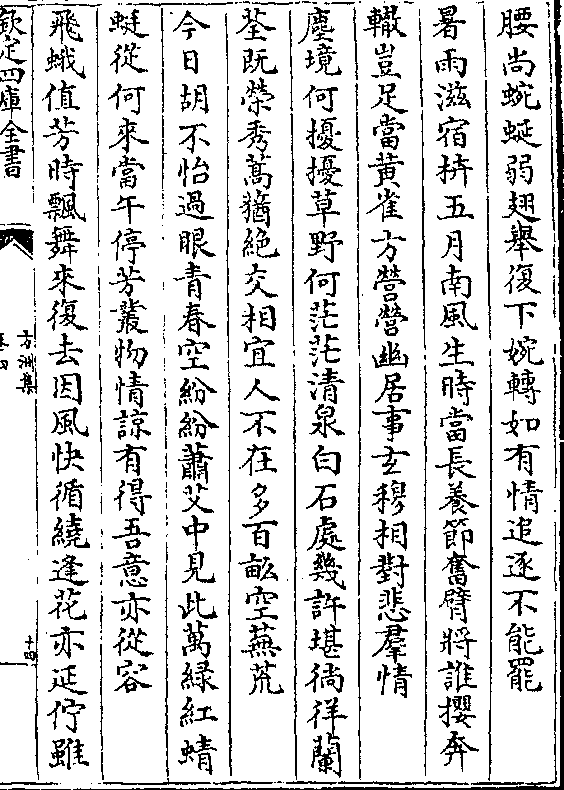 腰尚蜿蜒弱翅舉復下婉轉如有情追逐不能罷
暑雨滋宿莽五月南風生時當長養節奮臂將誰攖奔
轍豈足當黃雀方營營幽居事玄穆相對悲羣情
塵境何擾擾草野何茫茫清泉白石處幾許堪徜徉蘭
荃既榮秀蒿蕕絶交相宜人不在多百畝空蕪荒
今日胡不怡過眼青春空紛紛蕭艾中見此萬緑紅蜻
蜓從何來當午停芳叢物情諒有得吾意亦從容
飛蛾值芳時飄舞來復去因風快循繞逢花亦延佇雖
欽定四庫全書
方洲集
卷四
十四